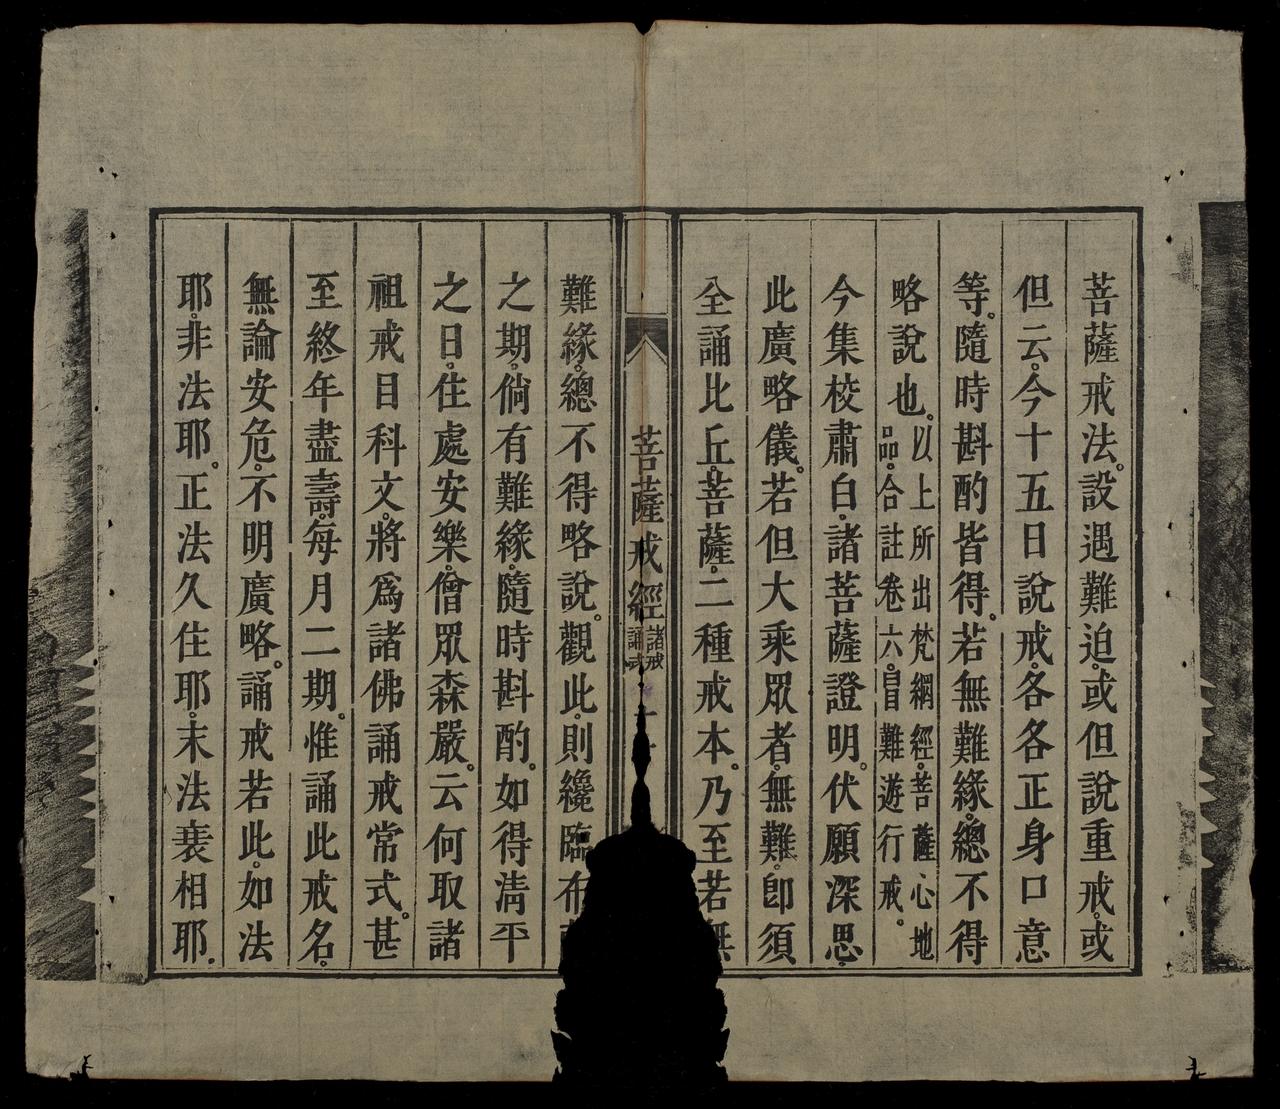 菩薩戒法。設遇難迫。或但說重戒。或
但云。今十五日說戒。各各正身口意
等。隨時斟酌皆得。若無難緣。總不得
略說也。以上所出梵網經。菩薩心地
品。合註卷六。冒難遊行戒。
今集校肅白。諸菩薩證明。伏願深思。
此廣略儀。若但大乘眾者。無難。卽須
全誦比丘。菩薩。二種戒本。乃至若無
菩薩戒經 諸戒
誦式
難緣。總不得略說。觀此。則纔臨布
之期。倘有難緣。隨時斟酌。如得清平
之日。住處安樂。僧眾森嚴。云何取諸
祖戒目科文。將爲諸佛誦戒常式。甚
至終年盡壽。每月二期。惟誦此戒名。
無論安危。不明廣略。誦戒若此。如法
耶。非法耶。正法久住耶。末法衰相耶。